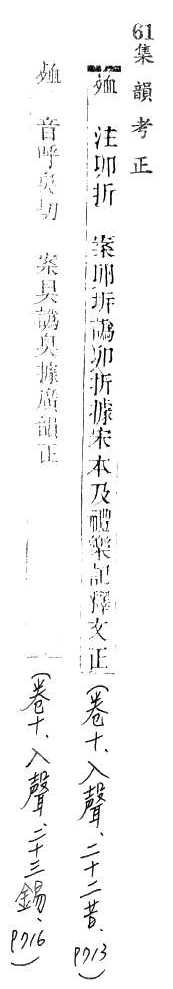 61集韻考正
殈 注卯折 案卵坼譌卯折據宋本及禮樂記釋文正 (卷十、入聲、二十二昔、P713)
殈 音呼臭切 案狊譌臭據廣韻正 (卷十、入聲、二十三錫、P716)